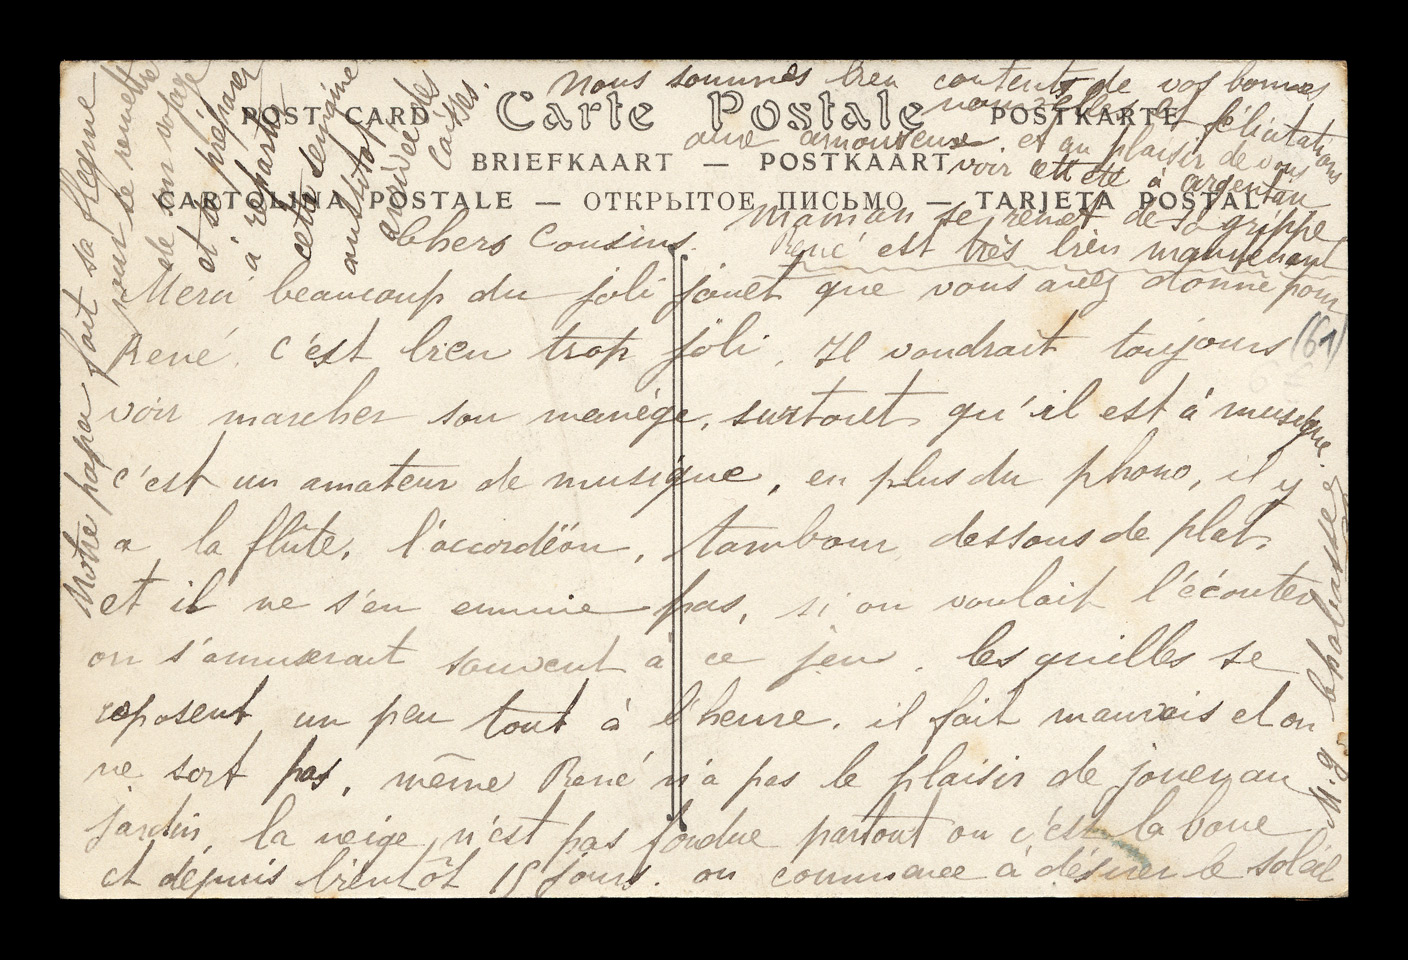 POST CARD Carte Postale POSTKARTE
BRIEFKAART — POSTKAART
CARTOLINA POSTALE — ОТКРЫТОЕ ПИСЬМО — TARJETA POSTAL
Chers Cousins.
Merci beaucoup du joli jouet que vous avez donné pour
René, c'est bien trop joli, Il voudrait toujours
(61)
voir marcher son manège, surtout qu'il est à musique.
c'est un amateur de musique, en plus du phono, il y
a la flûte, l'accordéon, tambour dessous de plat,
et il ne s'en ennuie pas, si on voulait l'écouter
on s'amuserait souvent à ce jeu. les quilles se
reposent un peu tout à l'heure. il fait mauvais et on
ne sort pas, même René n'a pas le plaisir de jouer au
jardin, la neige n'est pas fondue partout ou c'est la boue
et dépuis bientôt 15 jours. on commence à désirer le soleil
Notre papa fait sa flegme
pour se remettre
de son voyage
et se préparer
à repartir
cette semaine
aussitôt
arrivée des
caisses.
Nous sommes bien contents de vos bonnes
nouvelles et félicitations
aux amoureux et au plaisir de vous
voir cet été à argentan
Maman se remet de sa grippe
René est très bien maintenant
M. g.